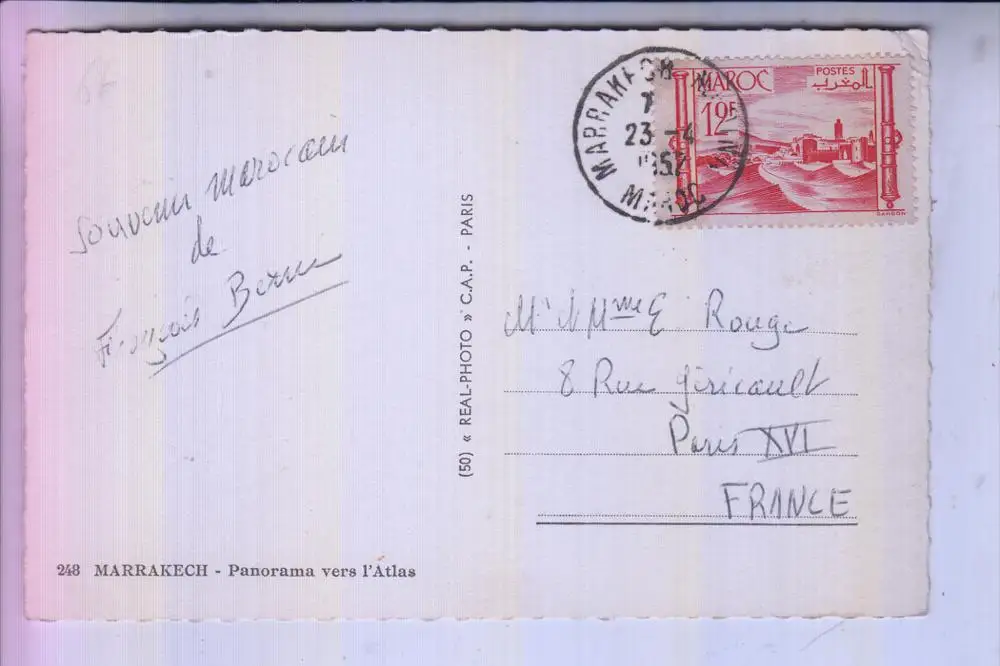 Souvenir marocain
de
François
(50) « REAL-PHOTO » C.A.P. - PARIS
248 MARRAKECH - Panorama vers l'Atlas
MARRAKECH
23 -4
1952
MAROC
MAROC
POSTES
المغرب
12F
Mr et Mme E. Rouge
8 Rue Géricault
Paris XVI
FRANCE